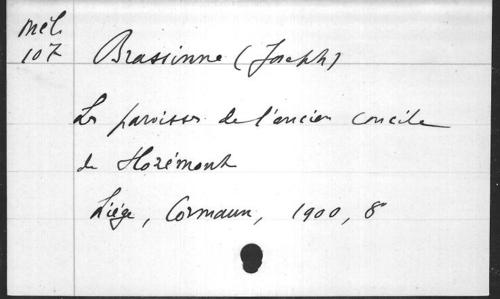 Mél.
107
Brassinne (Joseph)
Les paroisses de l'ancien concile
de Hozémont
Liége, Cormaux, 1900, 8°